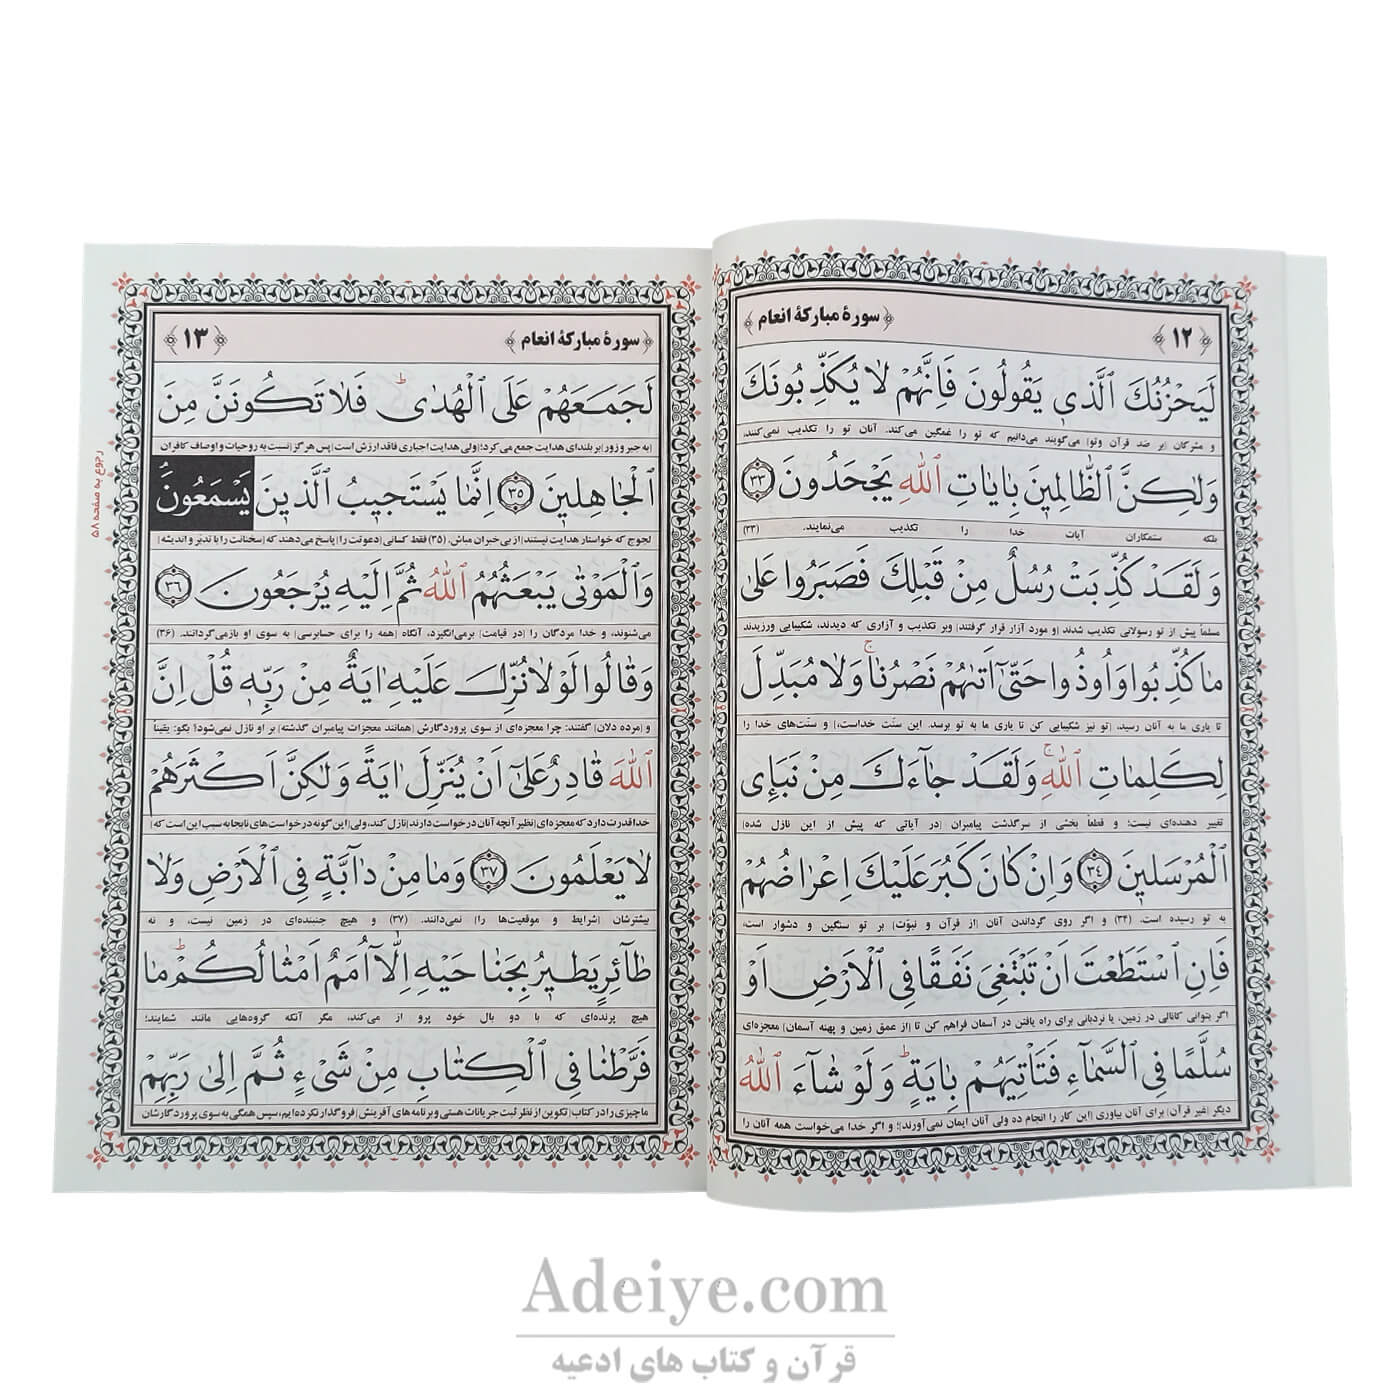 ﴿۱۲﴾ ﴿سورهٔ مبارکهٔ انعام﴾
لَيَحْزُنُكَ ٱلَّذى يَقُولُونَ فَاِنَّهُمْ لا يُكَذِّبُونَكَ
و مشرکان [بر ضد قرآن وتو] می‌گویند می‌دانیم که تو را غمگین می‌کند. آنان تو را تکذیب نمی‌کنند،
وَلٰكِنَّ ٱلظّالِمينَ بِاٰياتِ ٱللهِ يَجْحَدُونَ ﴿۳۳﴾
بلکه ستمکاران آیات خدا را تکذیب می‌نمایند. (۳۳)
وَلَقَدْ كُذِّبَتْ رُسُلٌ مِنْ قَبْلِكَ فَصَبَرُوا عَلىٰ
مسلماً پیش از تو رسولانی تکذیب شدند [و مورد آزار قرار گرفتند] وبر تکذیب و آزاری که دیدند، شکیبایی ورزیدند
ما كُذِّبُوا وَاُوذُوا حَتّىٰٓ اَتٰىهُمْ نَصْرُنا ۚ وَلا مُبَدِّلَ
تا یاری ما به آنان رسید، [تو نیز شکیبایی کن تا یاری ما به تو برسد. این سنّت خداست،] و سنّت‌های خدا را
لِكَلِماتِ ٱللهِ ۚ وَلَقَدْ جاءَكَ مِنْ نَبَإِى
تغییر دهنده‌ای نیست؛ و قطعاً بخشی از سرگذشت پیامبران [در آیاتی که پیش از این نازل شده]
ٱلْمُرْسَلينَ ﴿۳۴﴾ وَاِنْ كانَ كَبُرَ عَلَيْكَ اِعْراضُهُمْ
به تو رسیده است. (۳۴) و اگر روی گرداندن آنان [از قرآن و نبوّت] بر تو سنگین و دشوار است،
فَاِنِ ٱسْتَطَعْتَ اَنْ تَبْتَغِىَ نَفَقًا فِى ٱلْاَرْضِ اَوْ
اگر بتوانی کانالی در زمین، یا نردبانی برای راه یافتن در آسمان فراهم کن تا [از عمق زمین و پهنه آسمان] معجزه‌ای
سُلَّمًا فِى ٱلسَّماءِ فَتَاْتِيَهُمْ بِاٰيَةٍ ۚ وَلَوْ شاءَ ٱللهُ
دیگر [غیر قرآن] برای آنان بیاوری [این کار را انجام ده ولی آنان ایمان نمی‌آورند]؛ و اگر خدا می‌خواست همه آنان را
﴿سورهٔ مبارکهٔ انعام﴾ ﴿۱۳﴾
لَجَمَعَهُمْ عَلَى ٱلْهُدىٰ ۚ فَلا تَكُونَنَّ مِنَ
[به جبر و زور] بر بلندای هدایت جمع می‌کرد؛ [ولی هدایت اجباری فاقد ارزش است] پس هرگز [نسبت به روحیات و اوصاف کافران
ٱلْجاهِلينَ ﴿۳۵﴾ اِنَّما يَسْتَجيبُ ٱلَّذينَ يَسْمَعُونَ
لجوج که خواستار هدایت نیستند] از بی‌خبران مباش. (۳۵) فقط کسانی [دعوتت را] پاسخ می‌دهند که [سخنانت را با تدبّر و اندیشه]
وَٱلْمَوْتىٰ يَبْعَثُهُمُ ٱللهُ ثُمَّ اِلَيْهِ يُرْجَعُونَ ﴿۳۶﴾
می‌شنوند، و خدا مردگان را [در قیامت] برمی‌انگیزد، آنگاه [همه را برای حسابرسی] به سوی او بازمی‌گردانند. (۳۶)
وَقالُوا لَوْلا نُزِّلَ عَلَيْهِ اٰيَةٌ مِنْ رَبِّهِ قُلْ اِنَّ
و [مرده دلان] گفتند: چرا معجزه‌ای از سوی پروردگارش [همانند معجزات پیامبران گذشته] بر او نازل نمی‌شود؟ بگو: یقیناً
ٱللهَ قادِرٌ عَلىٰٓ اَنْ يُنَزِّلَ اٰيَةً وَلٰكِنَّ اَكْثَرَهُمْ
خدا قدرت دارد که معجزه‌ای [نظیر آنچه آنان درخواست دارند] نازل کند، ولی [این گونه درخواست‌های نابجا به سبب این است که]
لا يَعْلَمُونَ ﴿۳۷﴾ وَما مِنْ دابَّةٍ فِى ٱلْاَرْضِ وَلا
بیشترشان [شرایط و موقعیت‌ها را] نمی‌دانند. (۳۷) و هیچ جنبنده‌ای در زمین نیست، و نه
طائِرٍ يَطيرُ بِجَناحَيْهِ اِلّا اُمَمٌ اَمْثالُكُمْ ۚ ما
هیچ پرنده‌ای که با دو بال خود پرواز می‌کند، مگر آنکه گروه‌هایی مانند شمایند؛
فَرَّطْنا فِى ٱلْكِتابِ مِنْ شَىْءٍ ثُمَّ اِلىٰ رَبِّهِمْ
ما چیزی را در کتاب [تکوین از نظر ثبت جریانات هستی و برنامه های آفرینش] فروگذار نکرده ایم، سپس همگی به سوی پروردگارشان
رجوع به صفحه ۵۸
Adeiye.com
قرآن و کتاب های ادعیه